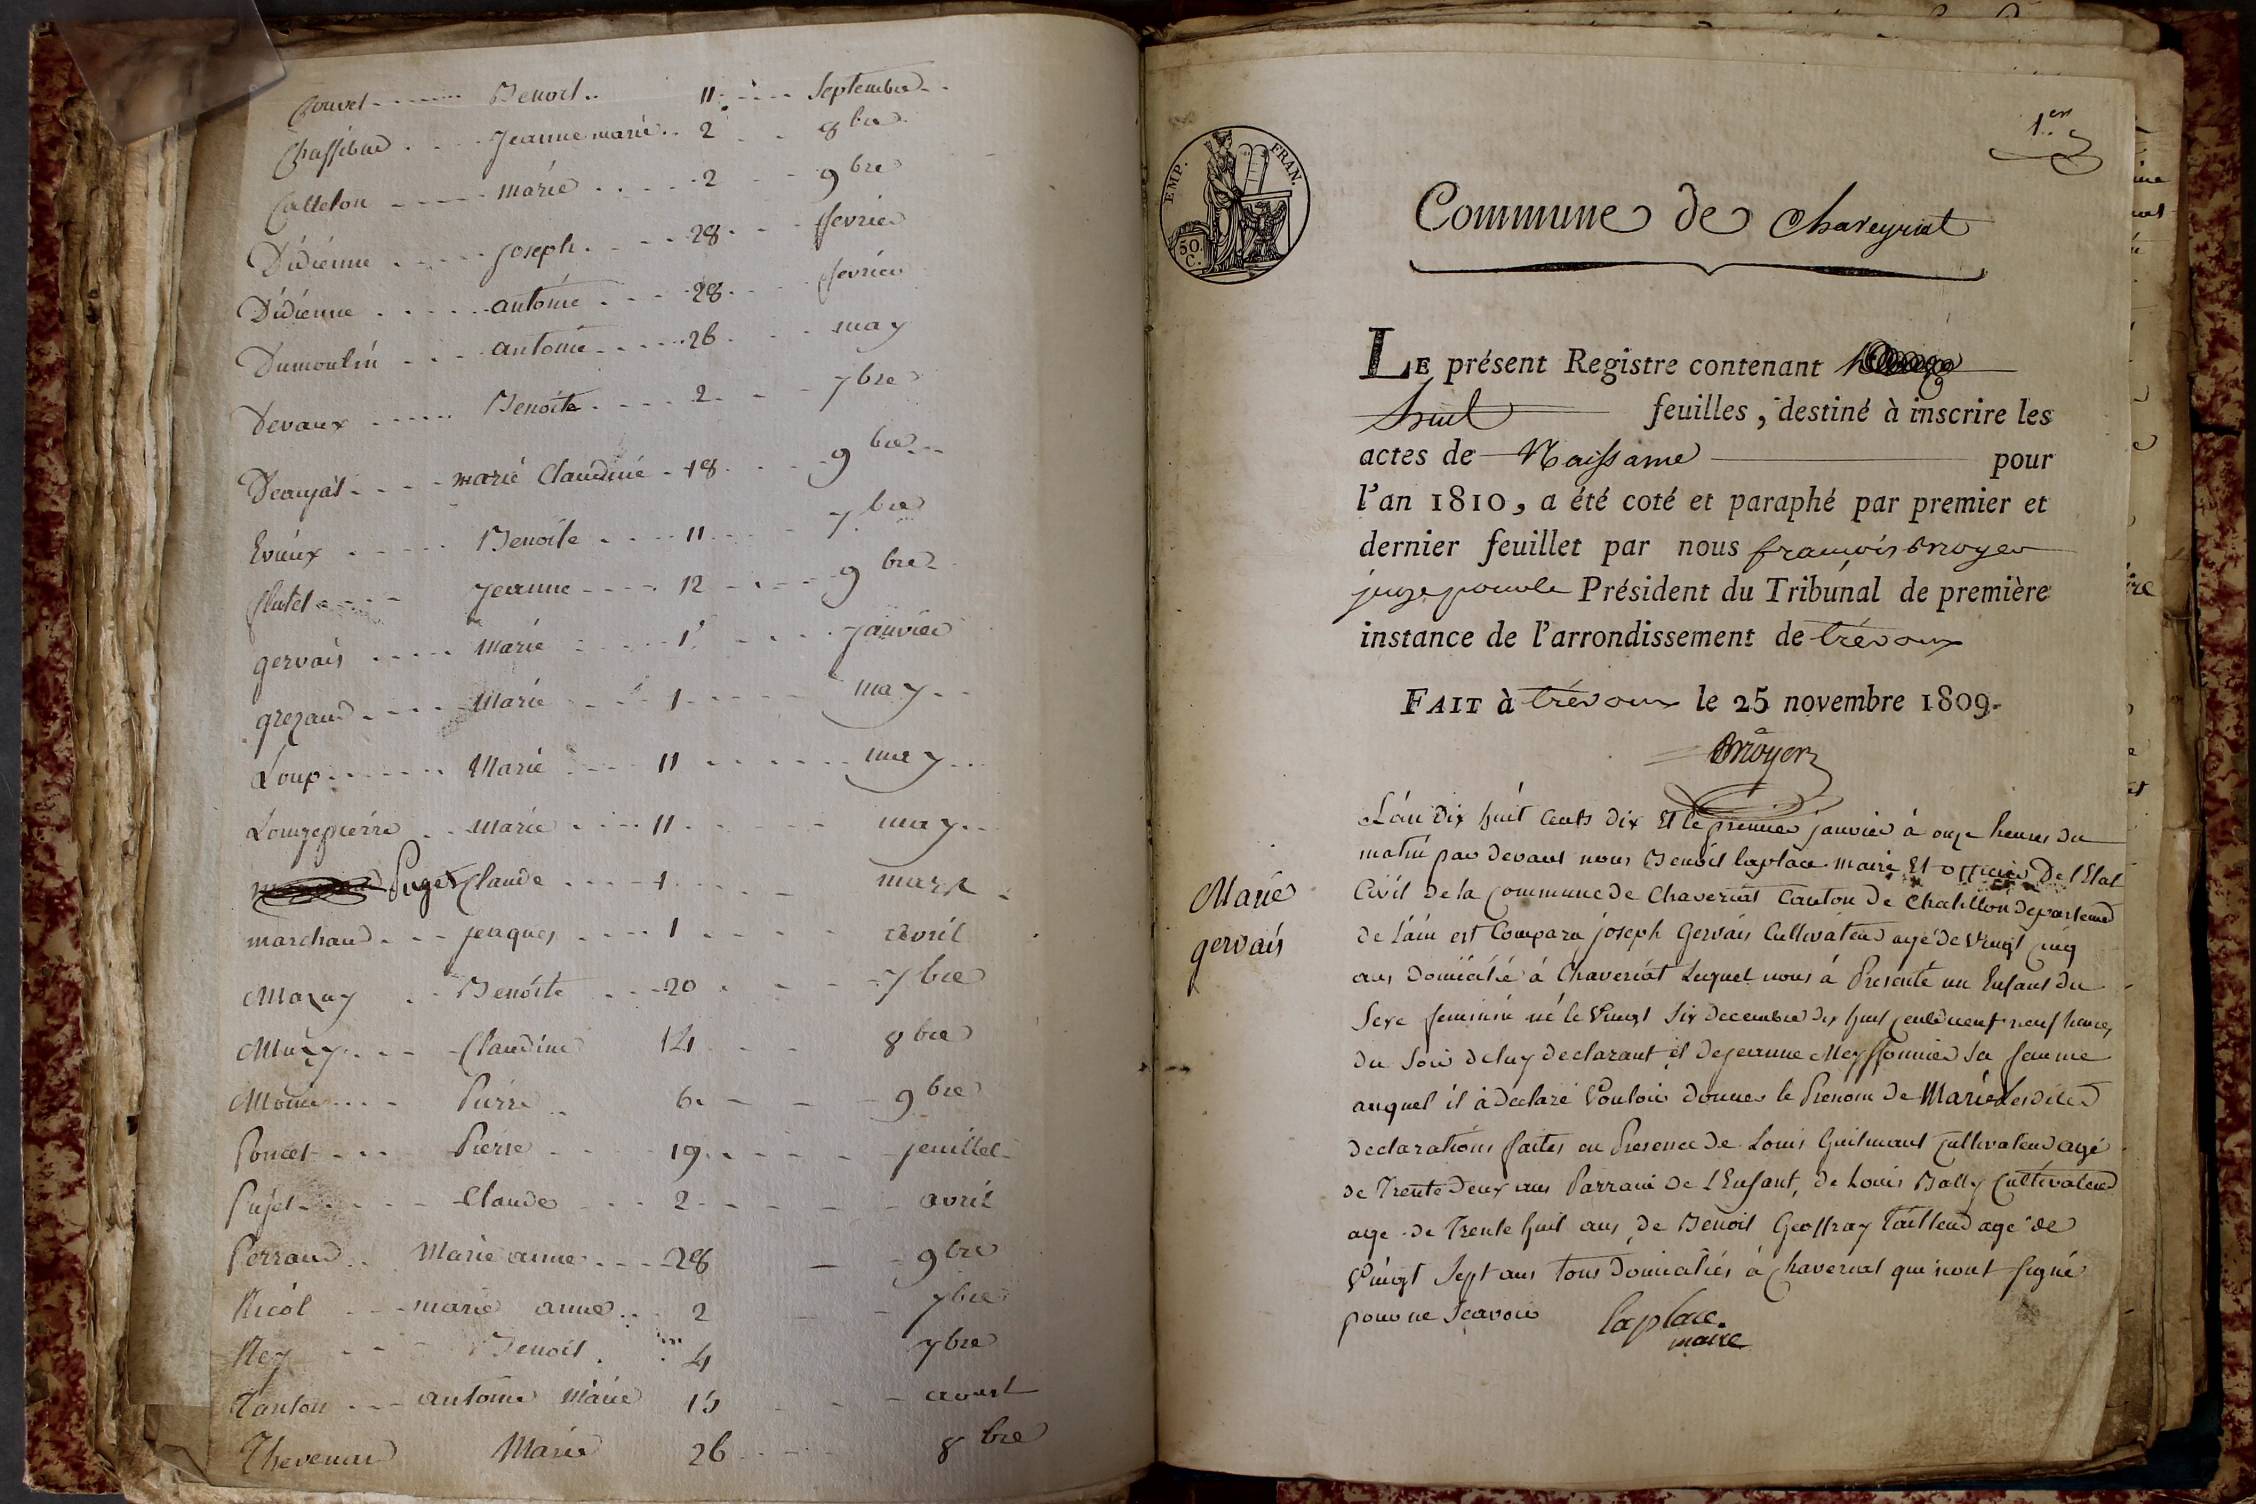 Bouvet Benoit 11 Septembre
Jeanne marie 2 8bre
Catteton marie 2 9bre
Didienne joseph 28 fevrier
Didienne antoine 28 fevrier
Dumoulin antoine 26 may
Devaux Benoite 2 7bre
marie Claudine 18 9bre
Evieux Benoite 11 7bre
flutet Jeanne 12 9bre
gervais Marie 1r janvier
grezaud Marie 1 may
Loup Marie 11 may
Longepierre Marie 11 may
Puget Claude 1 mars
marchand jeaques 1 avril
Mazuy Benoite 20 7bre
Muzy Claudine 14 8bre
Monin Pierre 6 9bre
Poncet Pierre 19 jeuillet
Pujet Claude 2 avril
Perraud Marie anne 28 9bre
Nicol marie anne 2 7bre
Rey Benoit 4 7bre
Tanton antoine Marie 15 aoust
Thevenard Marie 26 8bre
1.er
EMP. FRAN.
50. C.
Commune de Chaveyriat
LE présent Registre contenant
huit feuilles, destiné à inscrire les
actes de Naissance pour
l'an 1810, a été coté et paraphé par premier et
dernier feuillet par nous françois Brroyer
juge pour le Président du Tribunal de première
instance de l'arrondissement de trévoux
FAIT à trévoux le 25 novembre 1809.
Brroyer
Marie
gervais
L'an dix huit cents dix Et le premier janvier à onze heures du
matin par devant nous Benoit laplace maire Et officier De l'Etat
Civil de la Commune de Chaveriat Canton de Chatillon departemend
de l'ain est Comparu joseph Gervais Cultivateur agé de Vingt Cinq
ans domicilié à Chaveriat Lequel nous à Presenté un Enfant du
Sexe feminin né le Vingt Six decembre dix huit cent neuf neuf heures
du Soir de luy declarant et de jeanne Meyssonnier sa femme
auquel il à declaré Vouloir donner le Prenom de Marie Lesdites
declarations faites en Presence de Louis Guilmaut Cultivateur agé
de Trente Deux ans Parrain de l'Enfant, de Louis Bally Cultivateur
age de Trente huit ans, de Benoit Geoffray tailleur age de
Vingt Sept ans tous Domiciliés à Chaveriat qui n'ont signé
pour ne Scavoir laplace.
maire